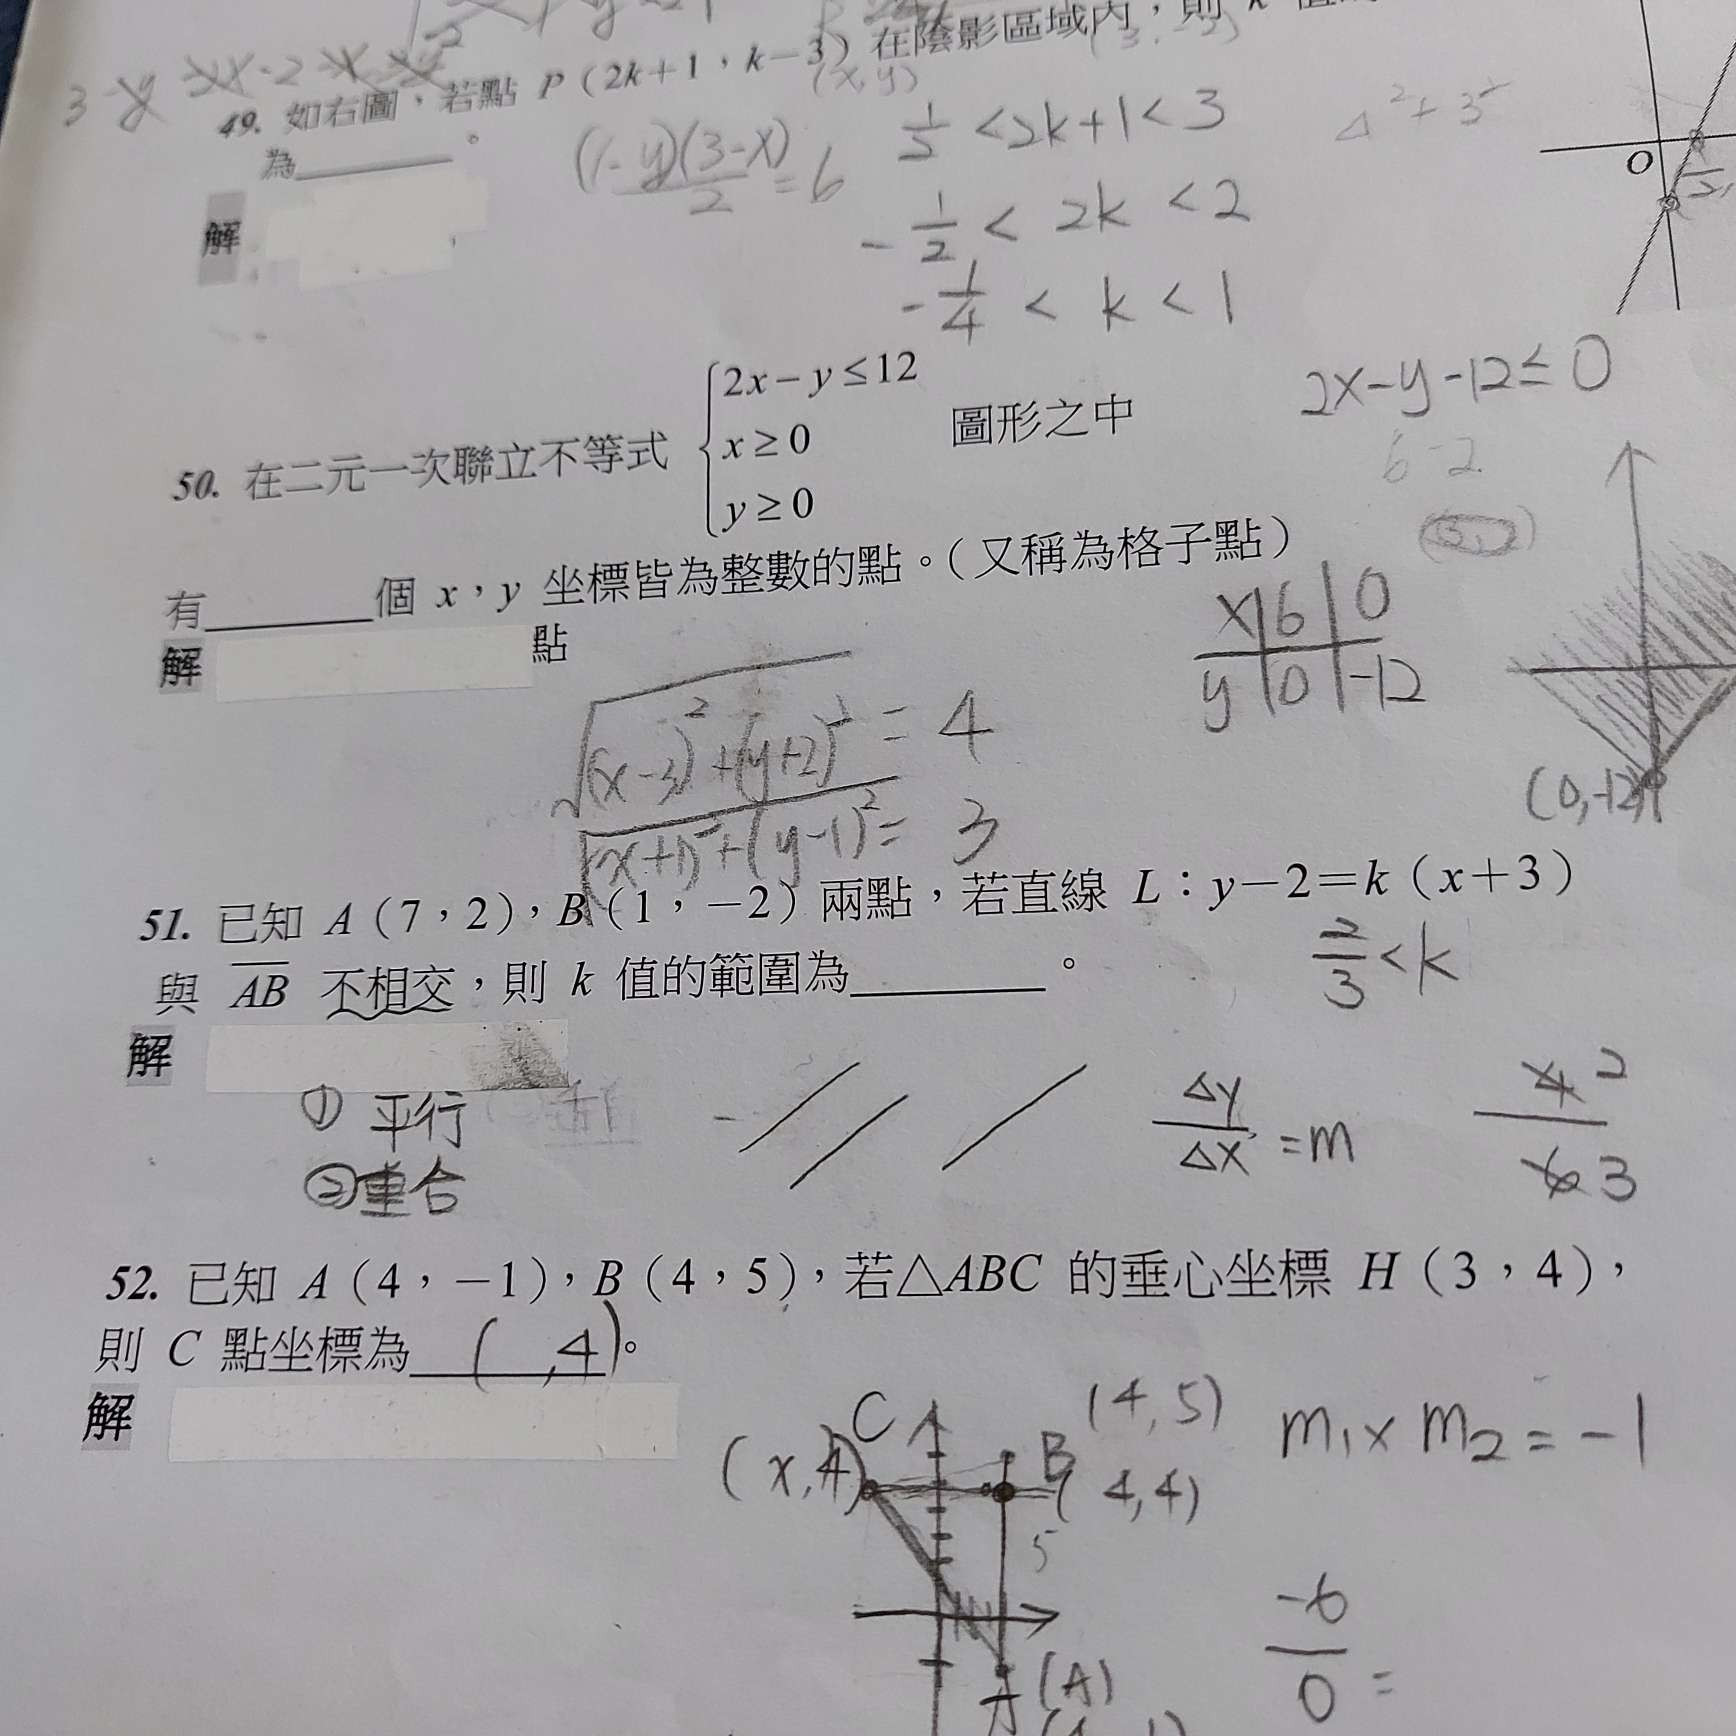 3-y
49. 如右圖,若點 P(2k+1,k-3)在陰影區域內,則 k
(x,y)
為______。
(1-y)(3-x)/2 = 6
1/2 < 2k+1 < 3
-1/2 < 2k < 2
-1/4 < k < 1
O
解
2x-y-12≤0
6-2
50. 在二元一次聯立不等式 { 2x-y≤12
x≥0
y≥0 圖形之中
有______個 x,y 坐標皆為整數的點。(又稱為格子點)
解 點
x | 6 | 0
y | 0 | -12
(0,-12)
√(x-3)²+(y+2)² = 4
√(x+1)²+(y-1)² = 3
51. 已知 A(7,2),B(1,-2)兩點,若直線 L:y-2=k(x+3)
與 AB 不相交,則 k 值的範圍為______。
2/3 < k
解
① 平行
② 重合
Δy/Δx = m
4 2
6 3
52. 已知 A(4,-1),B(4,5),若△ABC 的垂心坐標 H(3,4),
則 C 點坐標為 ( ,4)。
解
C
(x,4)
(4,5)
B
(4,4)
5
m₁×m₂=-1
-6/0 =
A
(A)